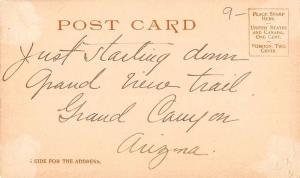 9-
POST CARD
PLACE STAMP
HERE.
UNITED STATES
AND CANADA,
ONE CENT.
FOREIGN, TWO
CENTS.
Just starting down
Grand View trail.
Grand Canyon
Arizona.
SIDE FOR THE ADDRESS.